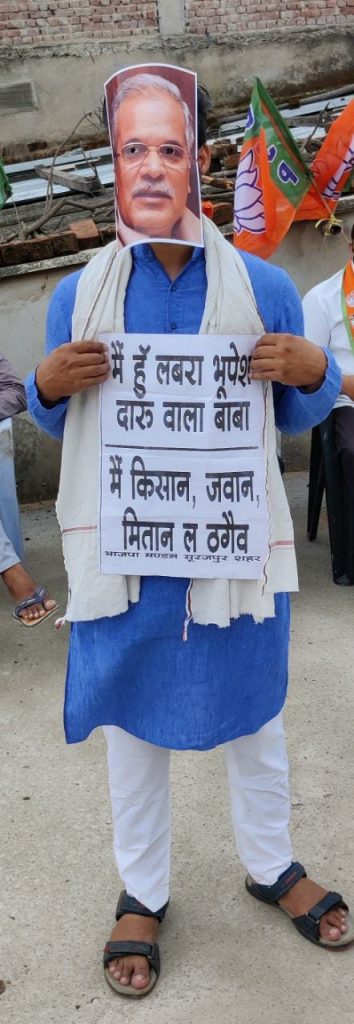 मैं हुँ लबरा भूपेश
दारू वाला बाबा
मैं किसान, जवान,
मितान ल ठगैव
भाजपा मण्डल सूरजपुर शहर